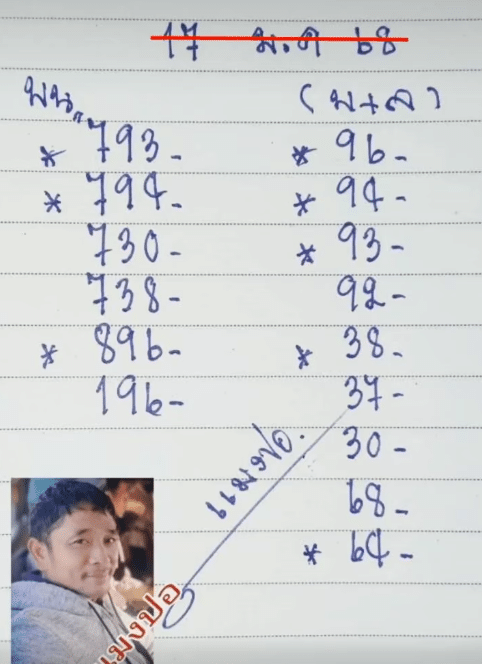 17 ม.ค 68
บน
(บ+ล)
* 793-
* 794-
730-
738-
* 896-
196-
* 96-
* 94-
* 93-
92-
* 38-
37-
30-
68-
* 64-
แมงปอ.
แมงปอ